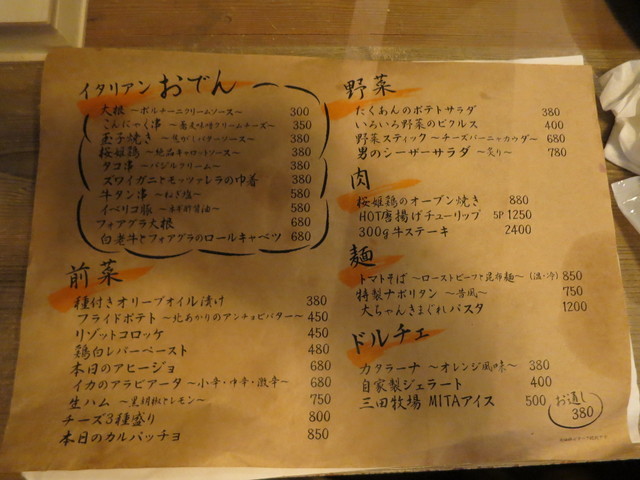 イタリアンおでん
大根 ～ポルチーニクリームソース～ 300
こんにゃく串 ～蕎麦味噌クリームチーズ～ 350
玉子焼き ～焦がしバターソース～ 380
桜姫鶏 ～絶品キャロットソース～ 380
タコ串 ～バジルクリーム～ 380
ズワイガニとモッツァレラの巾着 380
牛タン串 ～ねぎ塩～ 580
イベリコ豚 ～醤油～ 580
フォアグラ大根 680
白老牛とフォアグラのロールキャベツ 680
前菜
種付きオリーブオイル漬け 380
フライドポテト ～北あかりのアンチョビバター～ 450
リゾットコロッケ 450
鶏白レバーペースト 480
本日のアヒージョ 680
イカのアラビアータ ～小辛・中辛・激辛～ 680
生ハム ～黒胡椒とレモン～ 750
チーズ3種盛り 800
本日のカルパッチョ 850
野菜
たくあんのポテトサラダ 380
いろいろ野菜のピクルス 400
野菜スティック ～チーズバーニャカウダ～ 680
男のシーザーサラダ ～炙り～ 780
肉
桜姫鶏のオーブン焼き 880
HOT唐揚げチューリップ 5P 1250
300g牛ステーキ 2400
麺
トマトそば ～ローストビーフと昆布麺～ (温・冷) 850
特製ナポリタン ～昔風～ 750
大ちゃんきまぐれパスタ 1200
ドルチェ
カタラーナ ～オレンジ風味～ 380
自家製ジェラート 400
三田牧場 MITAアイス 500
お通し
380